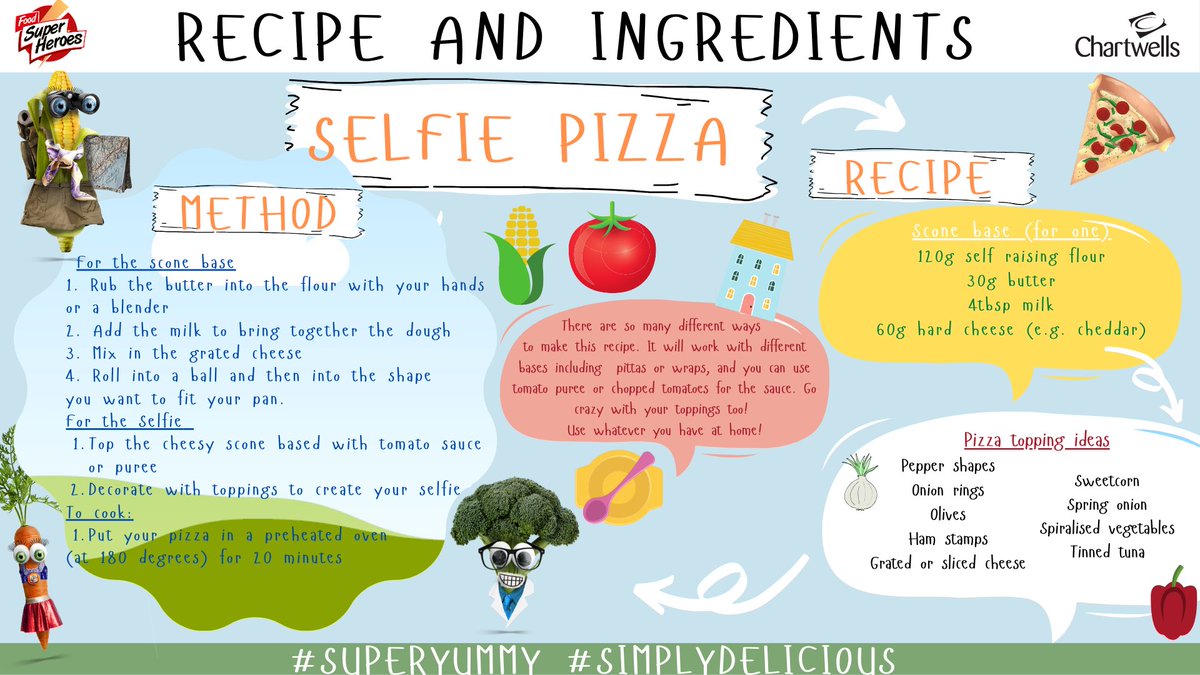 Food
Super
Heroes
RECIPE AND INGREDIENTS
Chartwells
SELFIE PIZZA
METHOD
For the scone base
1. Rub the butter into the flour with your hands
or a blender
2. Add the milk to bring together the dough
3. Mix in the grated cheese
4. Roll into a ball and then into the shape
you want to fit your pan.
For the Selfie
1. Top the cheesy scone based with tomato sauce
or puree
2. Decorate with toppings to create your selfie
To cook:
1. Put your pizza in a preheated oven
(at 180 degrees) for 20 minutes
There are so many different ways
to make this recipe. It will work with different
bases including pittas or wraps, and you can use
tomato puree or chopped tomatoes for the sauce. Go
crazy with your toppings too!
Use whatever you have at home!
RECIPE
Scone base (for one)
120g self raising flour
30g butter
4tbsp milk
60g hard cheese (e.g. cheddar)
Pizza topping ideas
Pepper shapes
Onion rings
Olives
Ham stamps
Grated or sliced cheese
Sweetcorn
Spring onion
Spiralised vegetables
Tinned tuna
#SUPERYUMMY #SIMPLYDELICIOUS